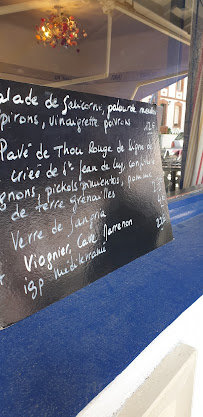 salade de salicorne, palourde meunière
pirons, vinaigrette poivrons
Pavé de Thon Rouge de ligne de
criée de St Jean de Luz, confiture
gnons, pickels pimientos, pomme
de terre grenailles
Verre de Sangria
Viognier Cave
igp méditerranée